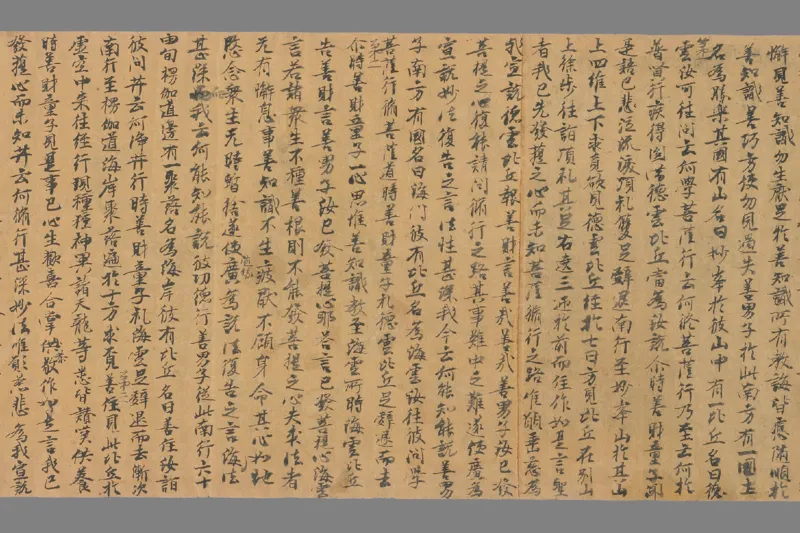 懈見善知識勿生厭足於善知識所有教誨皆應隨順於
善知識善巧方便勿見過失善男子於此南方有一國土
第一
名為勝樂其國有山名曰妙峯於彼山中有一比丘名曰德
雲汝可往問云何學菩薩行云何修菩薩行乃至云何於
普賢行疾得圓滿德雲比丘當為汝說尒時善財童子聞
是語已悲泣流淚頂礼雙足辭退南行至妙峯山於其山
上四維上下求覓欲見德雲比丘往於七日方見比丘在別山
上徐步往詣頂礼其足右遶三迊於前而住作如是言聖
者我已先發菩提之心而未知菩薩脩行之路唯願垂慈為
我宣說德雲比丘報善財言善哉善哉善男子汝已發
菩提之心復能請問脩行之路其事難中之難遂便廣為
宣說妙法復告之言法性甚深我今云何能知能說善男
子南方有國名曰海門彼有比丘名為海雲汝往彼問學
菩薩行脩菩薩道時善財童子礼德雲比丘足辭退而去
第二
尒時善財童子一心思惟善知識教至海雲所時海雲比丘
告善財言善男子汝已發菩提心耶答言已發菩提心海雲
言若諸眾生不種善根則不能發菩提之心夫求法者
无有懈息事善知識不生疲厭不顧身命其心如地
愍念眾生无時暫捨遂便廣為說法復告之言海法
甚深我云何能知能說彼功德行善男子從此南行六十
由旬楞伽道邊有一聚落名為海岸彼有比丘名曰善住汝詣
彼問并云何淨并行時善財童子礼海雲足辭退而去漸次
南行至楞伽道海岸聚落遍於十方求覓善住見此比丘於
第三
虛空中來往經行現種種神異諸天龍等悉皆讚嘆供養
時善財童子見是事已心生歡喜合掌恭敬作如是言我已
發菩心而未知并云何脩行甚深妙法唯願慈悲為我宣說